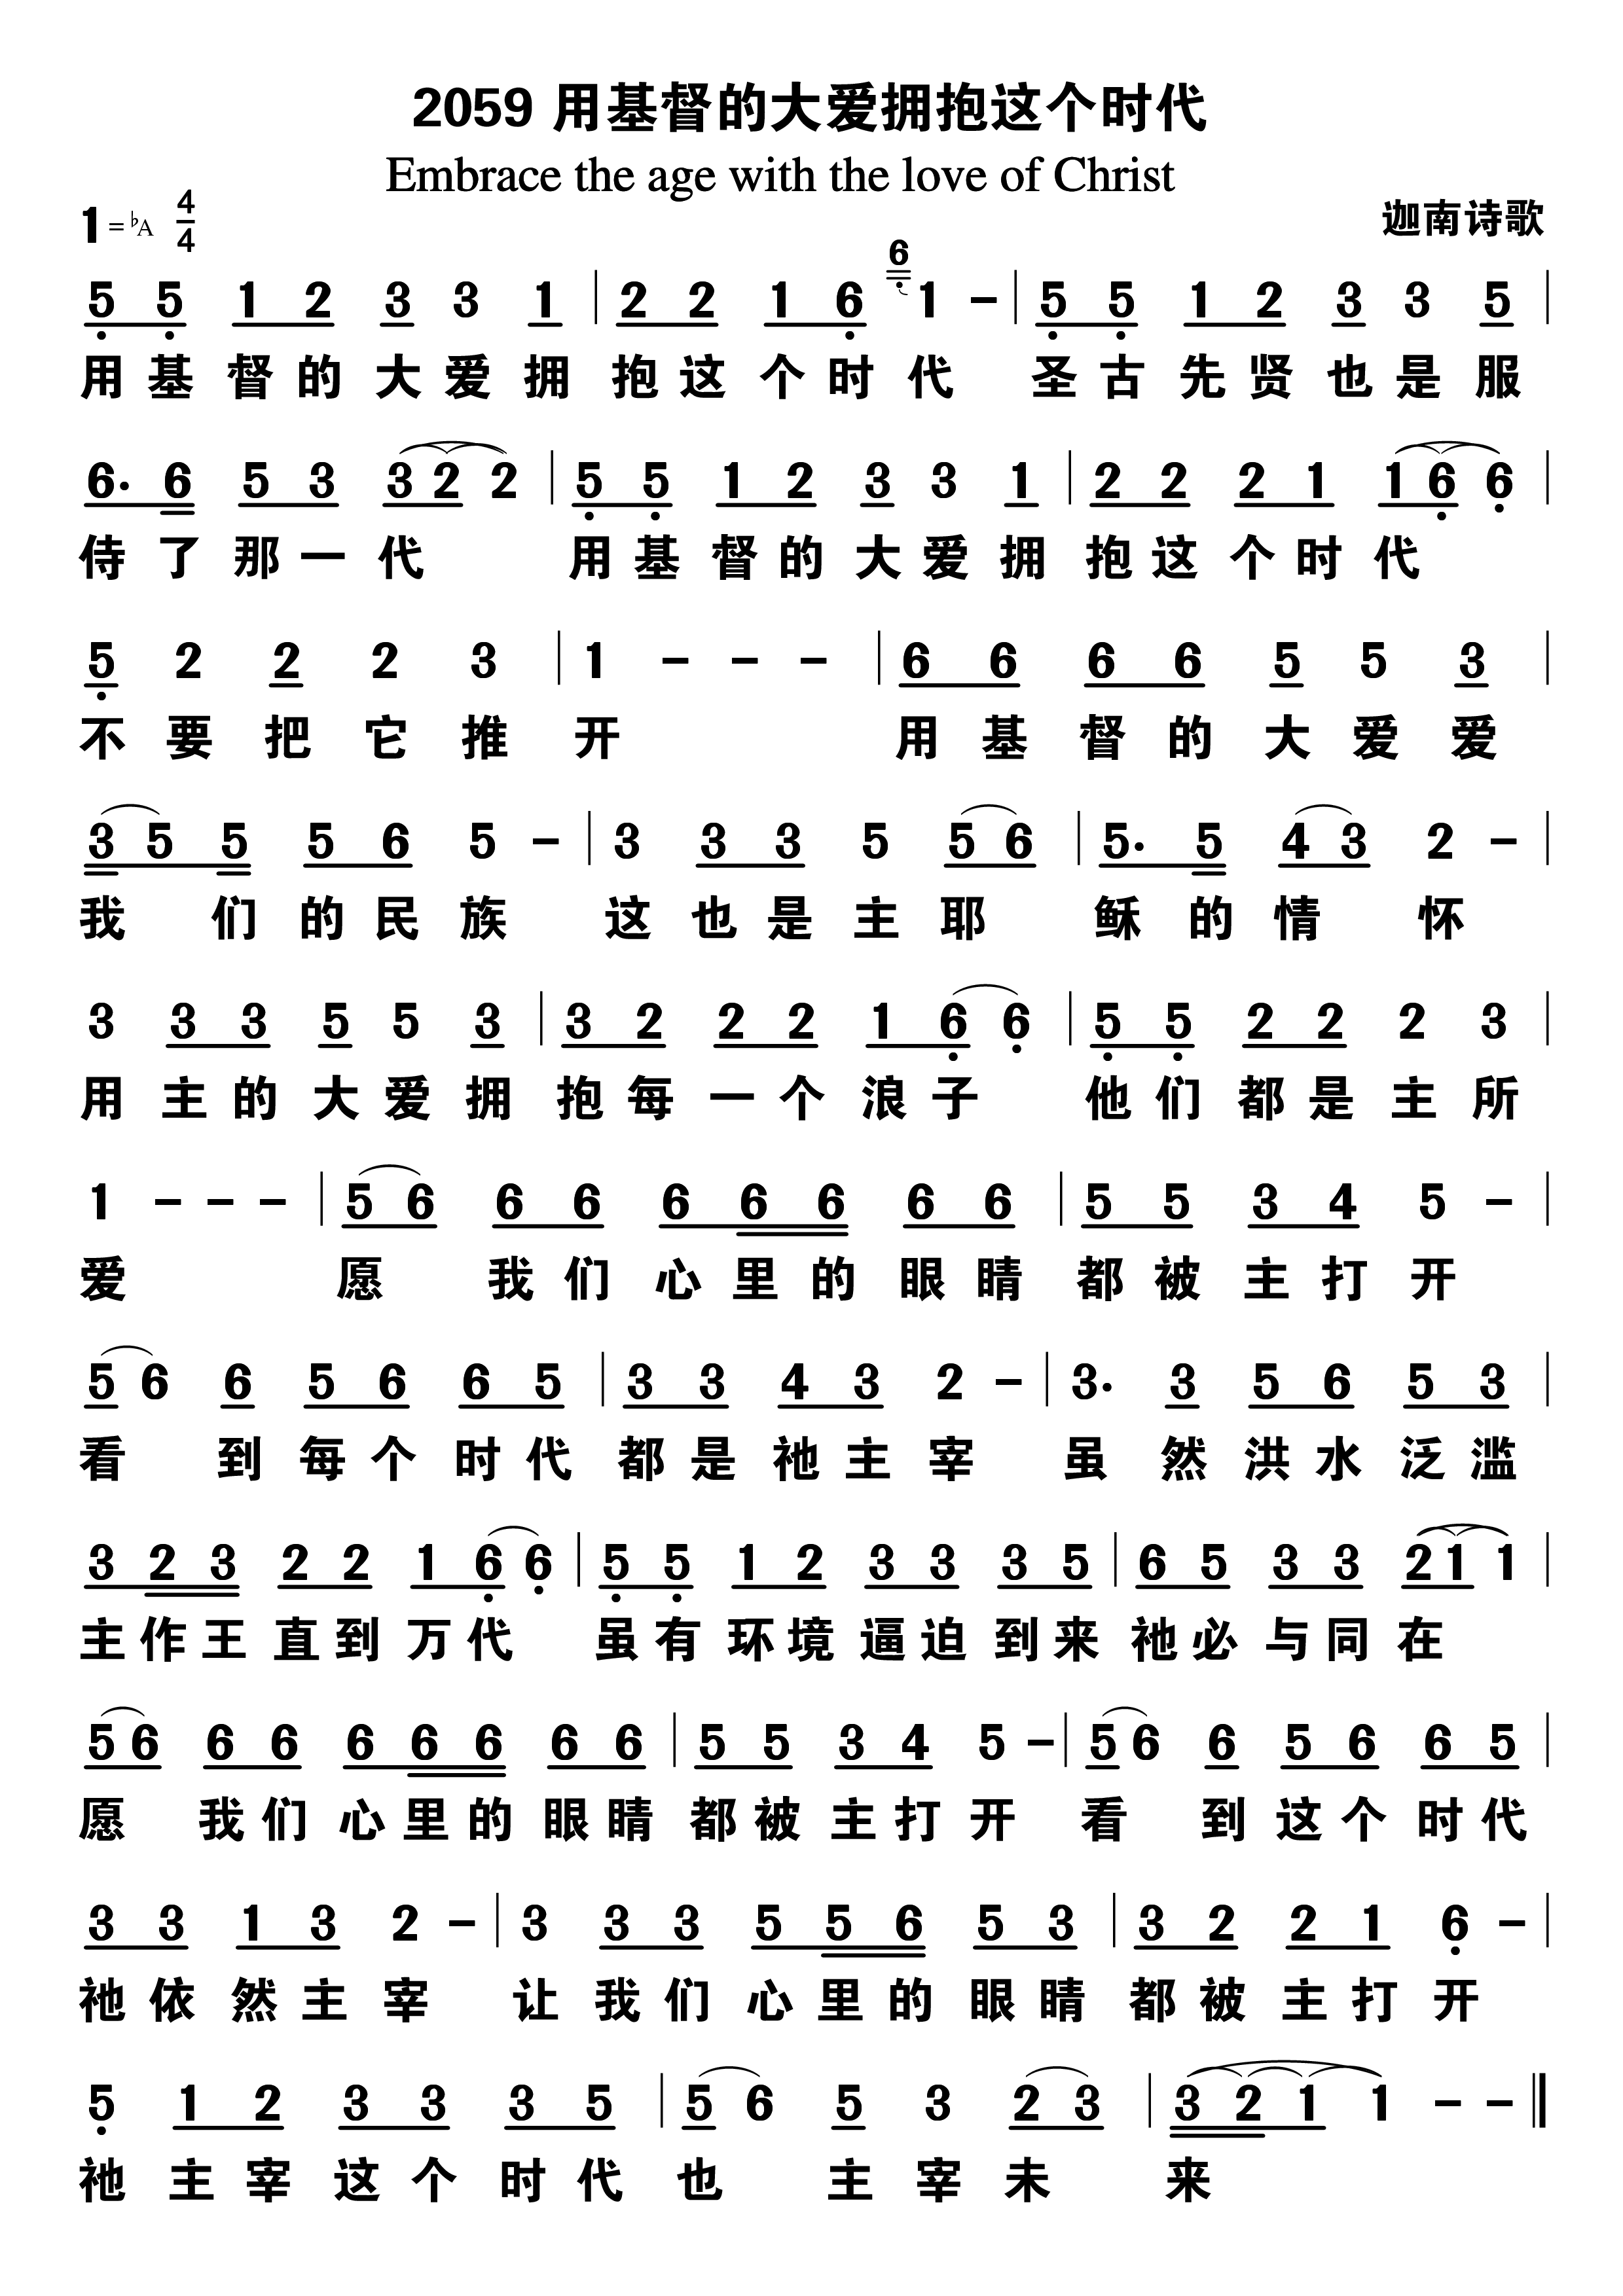 2059 用基督的大爱拥抱这个时代
Embrace the age with the love of Christ
1=♭A 4/4 迦南诗歌
6
5 5 1 2 3 3 1 | 2 2 1 6 1 - | 5 5 1 2 3 3 5 |
用基督的大爱拥抱这个时代 圣古先贤也是服
6. 6 5 3 3 2 2 | 5 5 1 2 3 3 1 | 2 2 2 1 1 6 6 |
侍了那一代 用基督的大爱拥抱这个时代
5 2 2 2 3 | 1 - - - | 6 6 6 6 5 5 3 |
不要把它推开 用基督的大爱爱
3 5 5 5 6 5 - | 3 3 3 5 5 6 | 5. 5 4 3 2 - |
我们的民族 这也是主耶稣的情怀
3 3 3 5 5 3 | 3 2 2 2 1 6 6 | 5 5 2 2 2 3 |
用主的大爱拥抱每一个浪子 他们都是主所
1 - - - | 5 6 6 6 6 6 6 6 6 | 5 5 3 4 5 - |
爱 愿我们心里的眼睛都被主打开
5 6 6 5 6 6 5 | 3 3 4 3 2 - | 3. 3 5 6 5 3 |
看到每个时代都是祂主宰 虽然洪水泛滥
3 2 3 2 2 1 6 6 | 5 5 1 2 3 3 3 5 | 6 5 3 3 2 1 1 |
主作王直到万代 虽有环境逼迫到来祂必与同在
5 6 6 6 6 6 6 6 6 | 5 5 3 4 5 - | 5 6 6 5 6 6 5 |
愿我们心里的眼睛都被主打开 看到这个时代
3 3 1 3 2 - | 3 3 3 5 5 6 5 3 | 3 2 2 1 6 - |
祂依然主宰 让我们心里的眼睛都被主打开
5 1 2 3 3 3 5 | 5 6 5 3 2 3 | 3 2 1 1 - - ‖
祂主宰这个时代也主宰未来